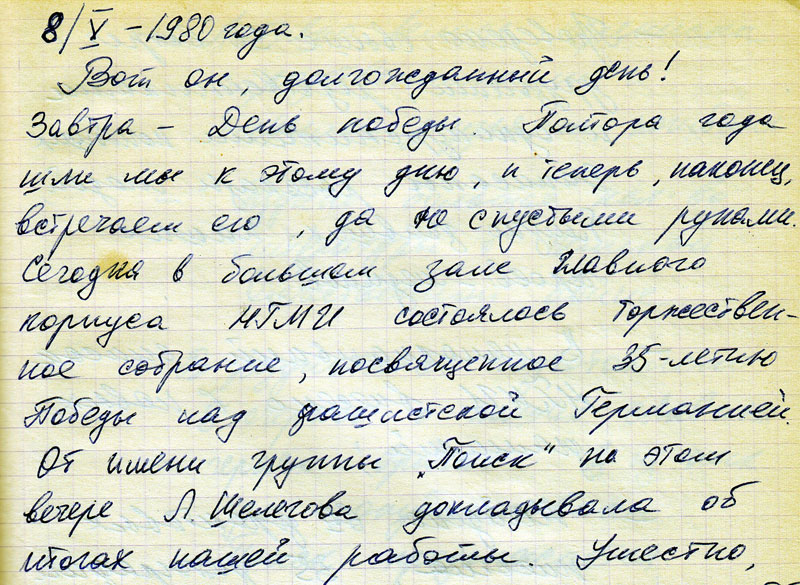 8/V – 1980 года.
Вот он, долгожданный день!
Завтра – День победы. Полтора года
шли мы к этому дню, и теперь, наконец,
встречаем его, да не с пустыми руками.
Сегодня в большом зале главного
корпуса НГМИ состоялось торжествен-
ное собрание, посвященное 35-летию
Победы над фашистской Германией.
От имени группы „Поиск“ на этом
вечере Л. Шелегова докладывала об
итогах нашей работы. Уместно,